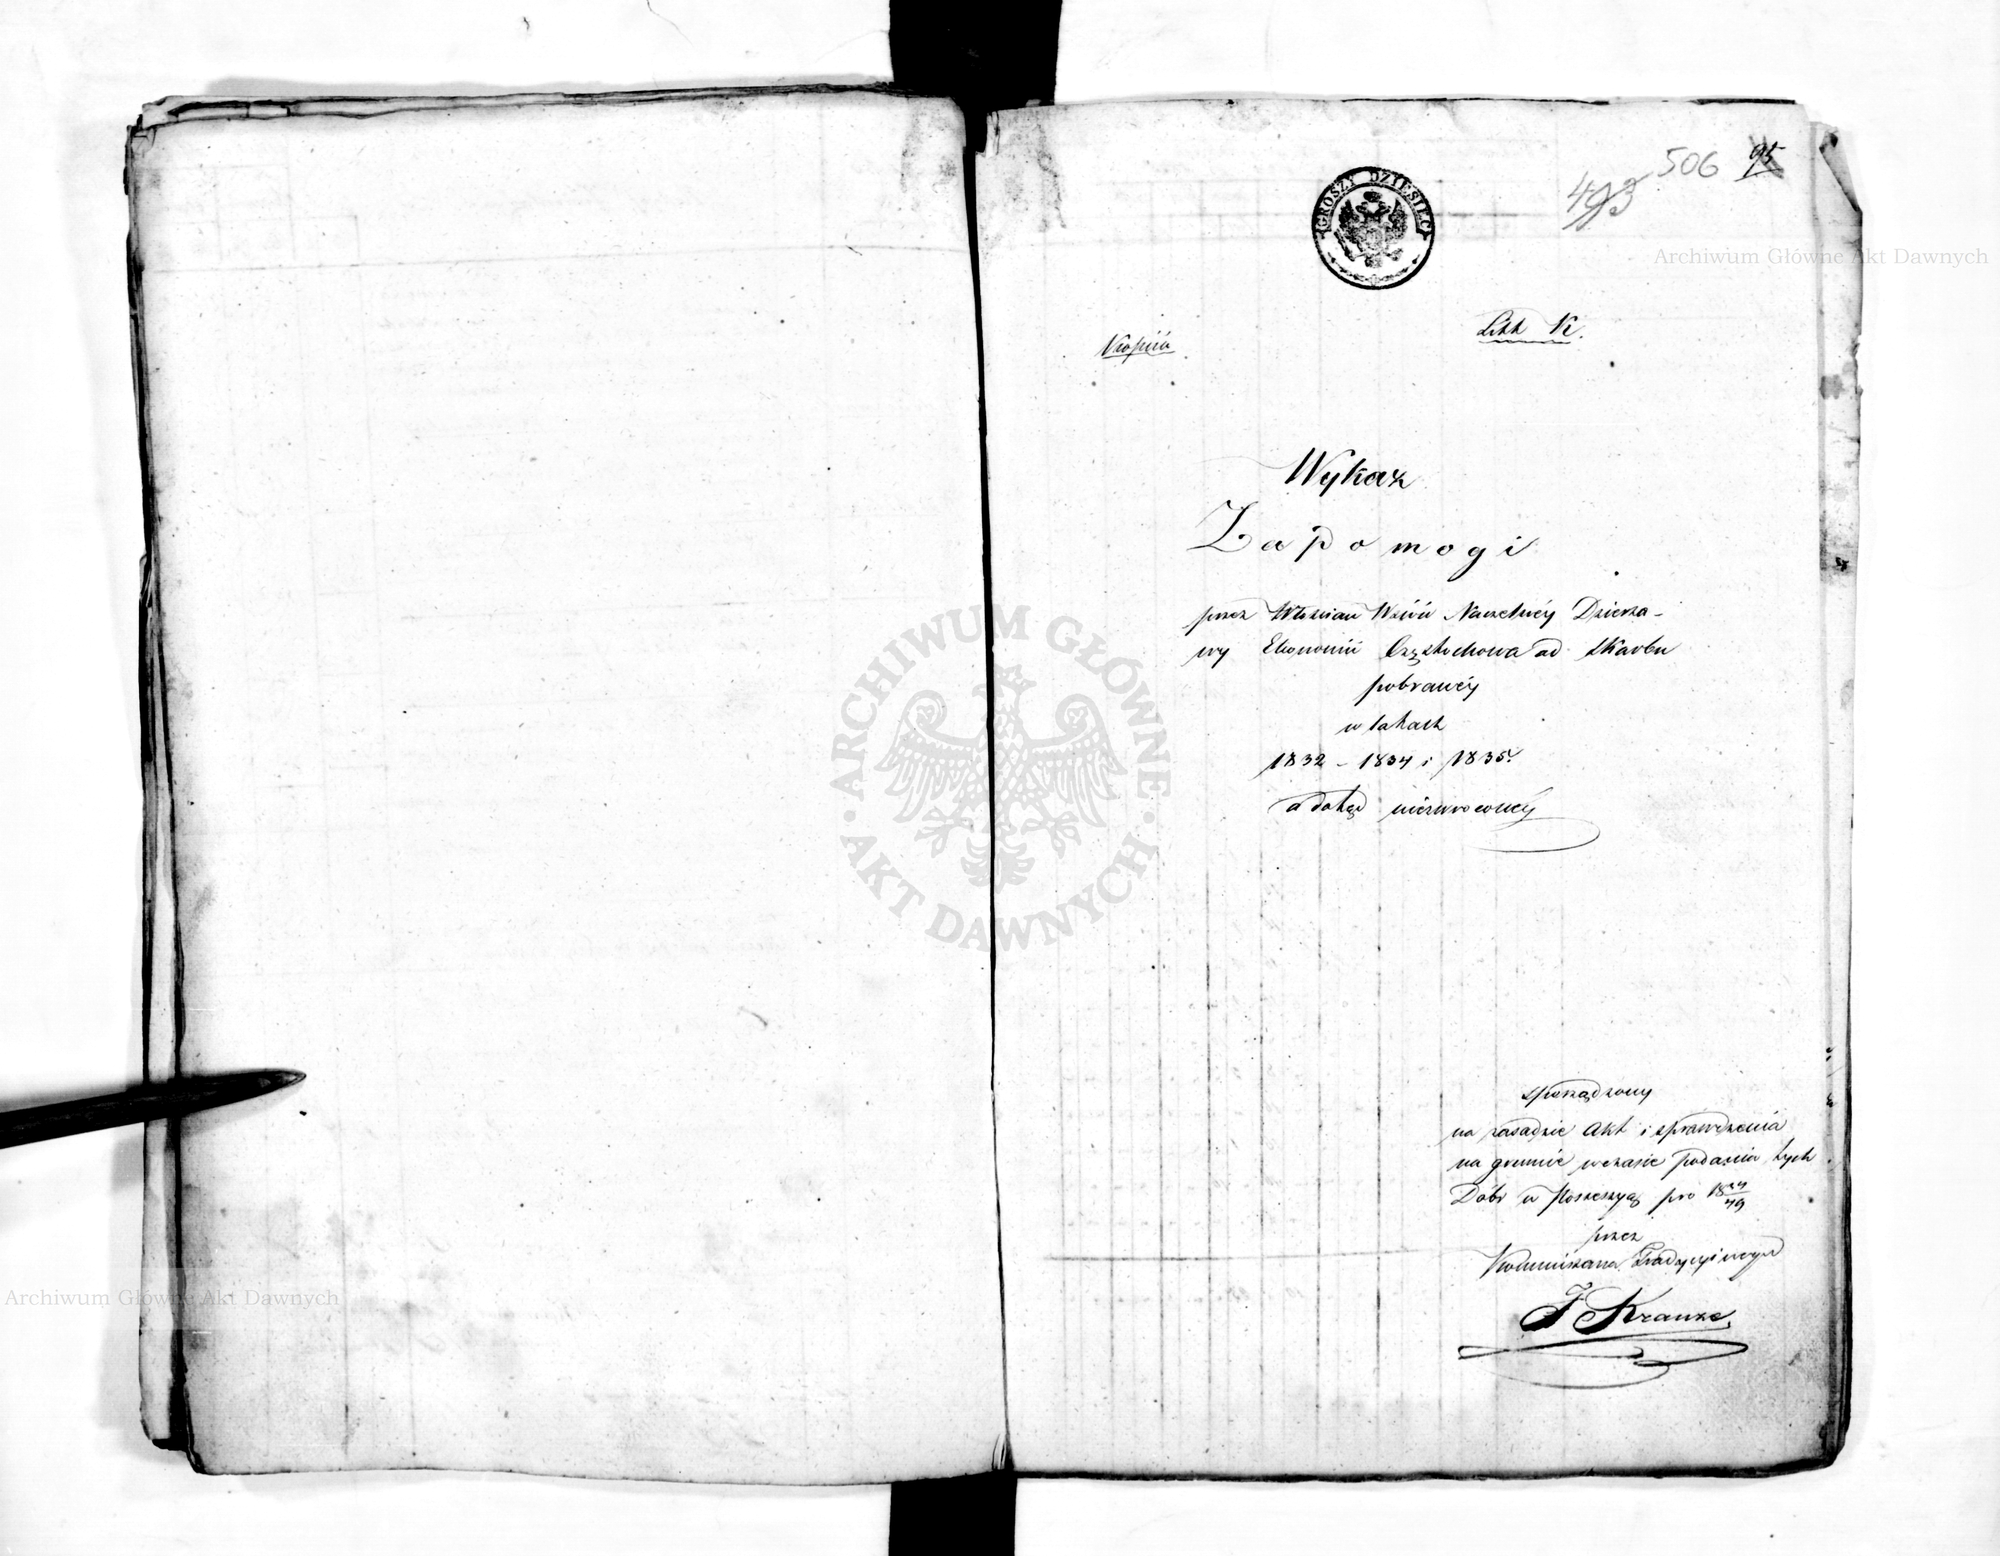 506 95
493
GROSZY DZIESIEC
Archiwum Główne Akt Dawnych
Litt K.
Kopiia
Wykaz
Zapomogi
przez Włościan Wsiów Naczelnéy Dzierża-
wy Ekonomii Częstochowa od Skarbu
pobranéy
w latach
1832 - 1834 i 1835.
a dotąd niezwróconéy
ARCHIWUM GŁÓWNE
AKT DAWNYCH
sporządzony
na zasadzie Akt i sprawdzenia
na gruncie w czasie podania tych
Dóbr w possessyą pro
przez
Kommissarza Tradycyinego
J Krauze
Archiwum Główne Akt Dawnych